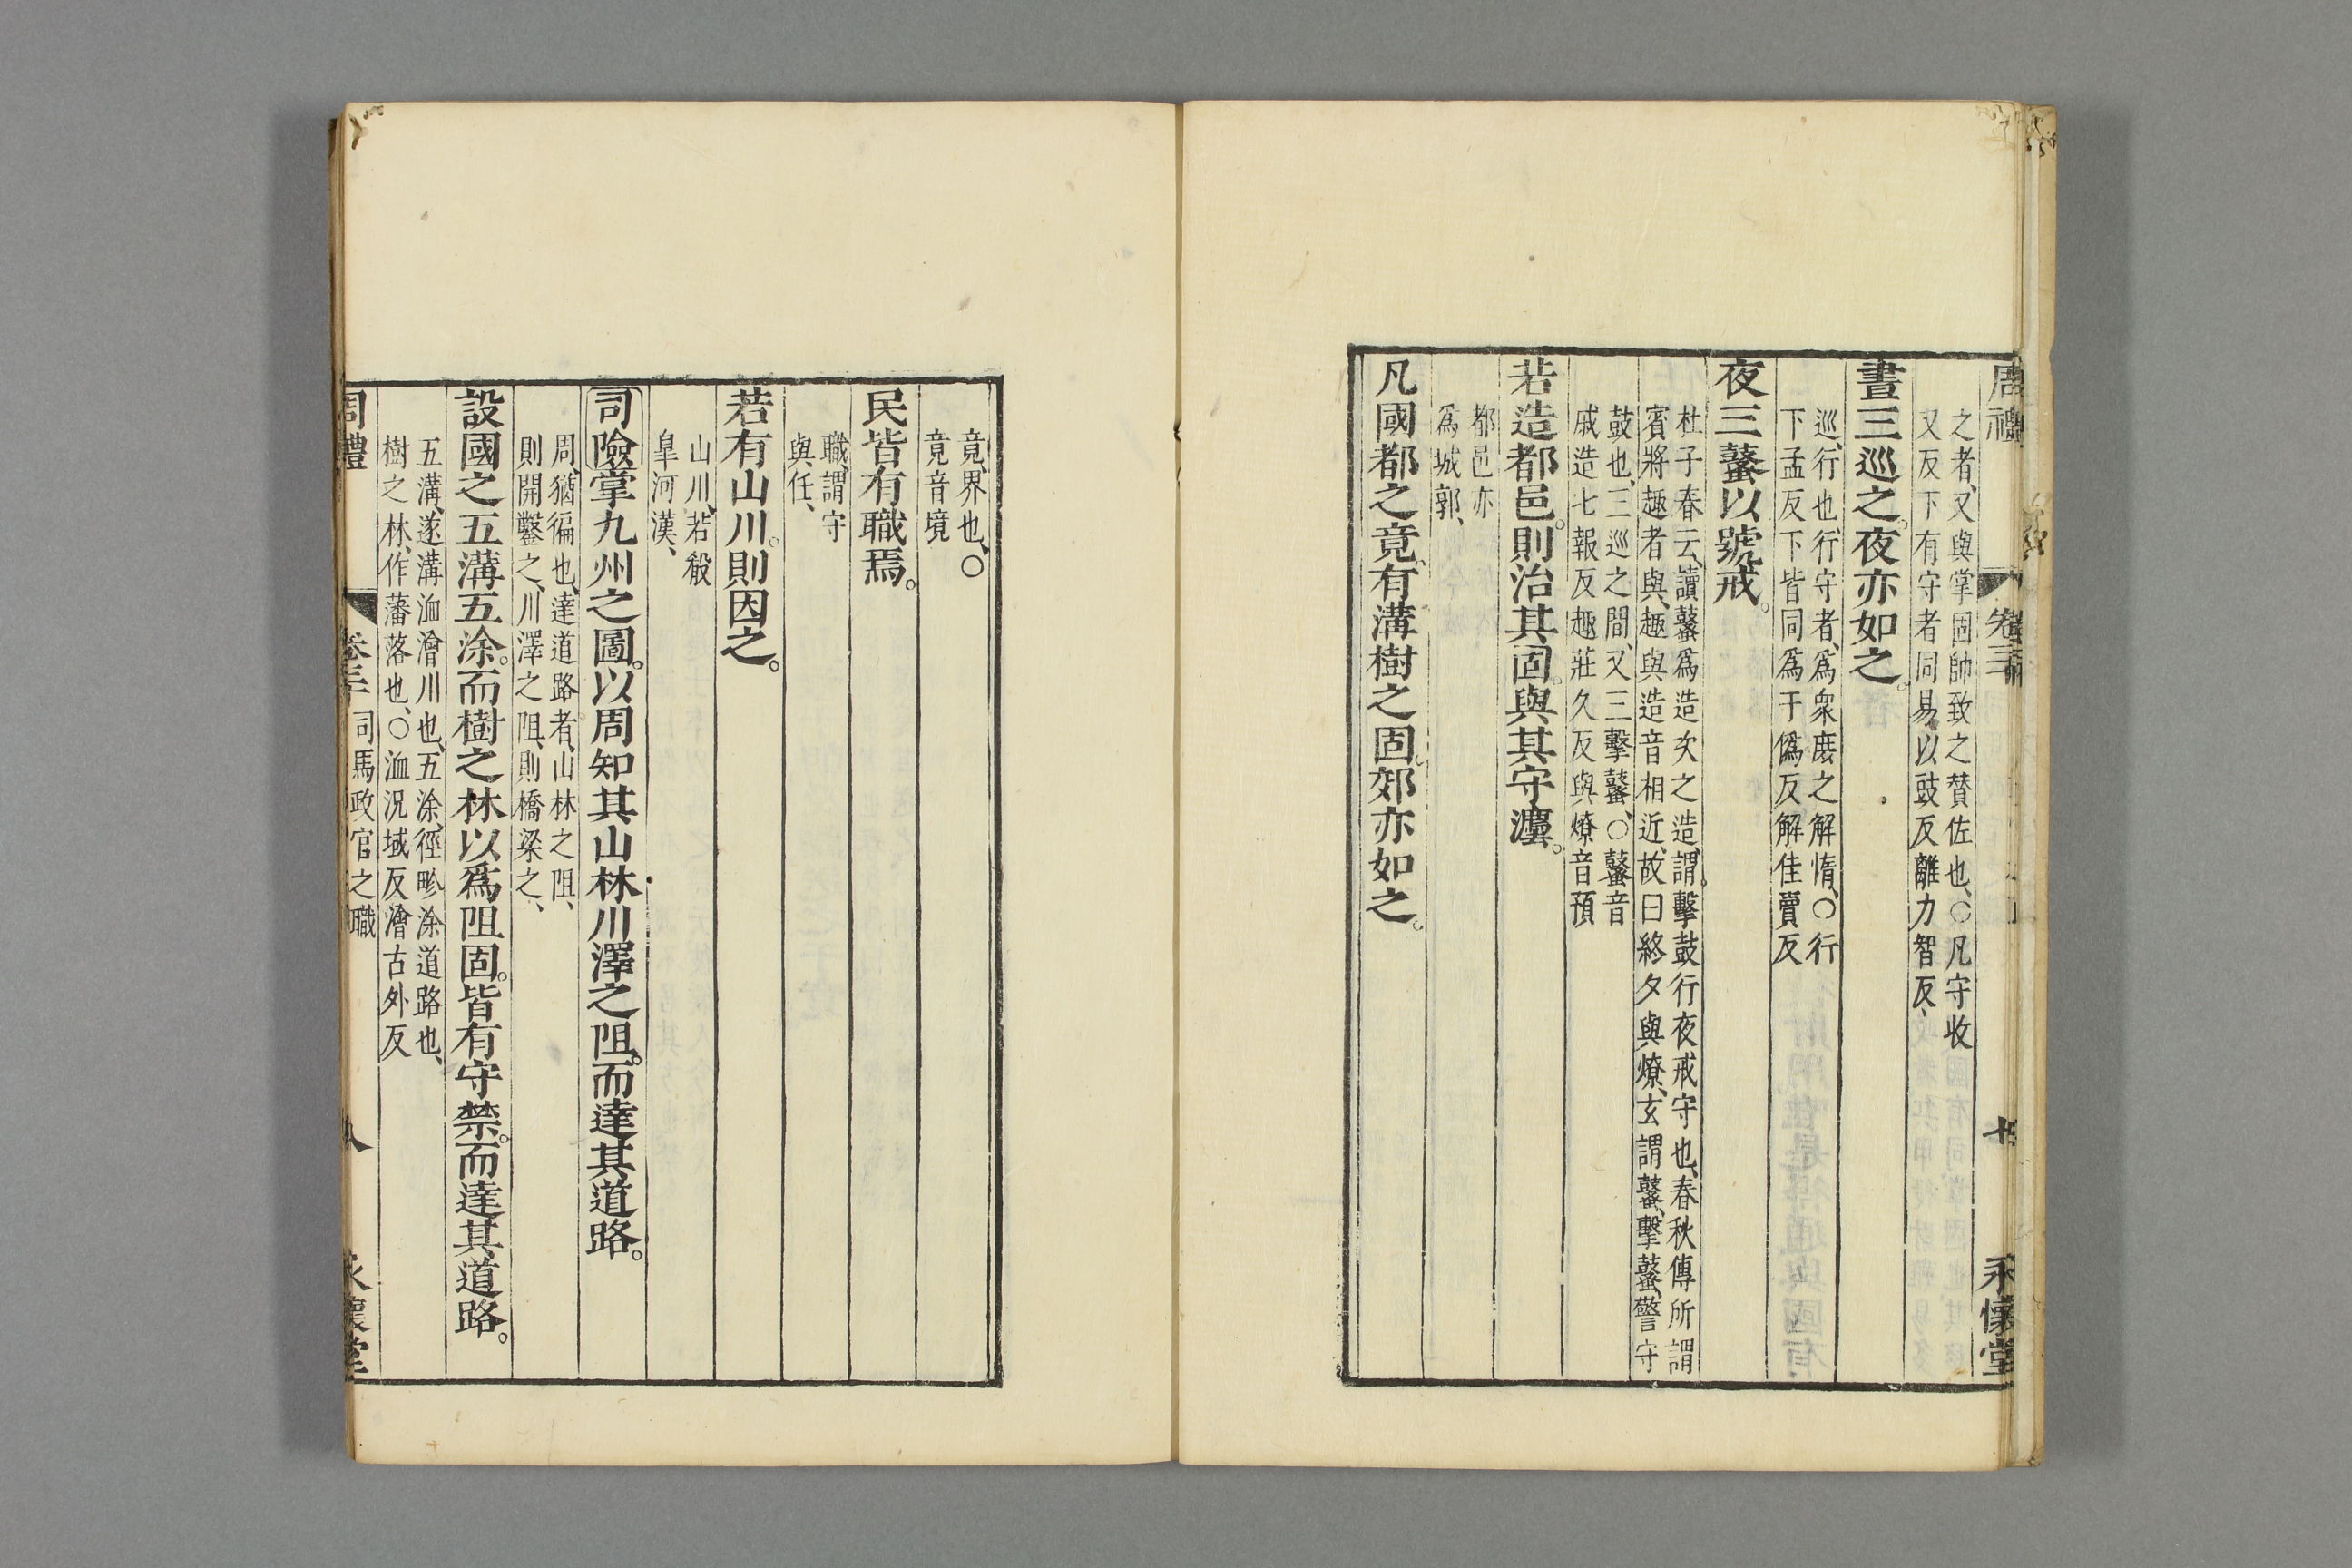 周禮 卷三十 七 永懷堂
之者、又與掌固帥致之、贊佐也、○凡守收
又反下有守者同易以豉反離力智反、
晝三巡之。夜亦如之。
巡、行也、行守者、爲衆庶之解惰、○行
下孟反下皆同爲于僞反解佳賣反
夜三鼜以號戒。
杜子春云、讀鼜爲造次之造、謂擊鼓行夜戒守也、春秋傳所謂
賓將趣者與、趣與造音相近、故曰終夕與燎、玄謂鼜、擊鼜、警守
鼓也、三巡之間、又三擊鼜、○鼜音
戚造七報反趣莊久反與燎音預
若造都邑。則治其固。與其守灋。
都邑亦
爲城郭、
凡國都之竟。有溝樹之固。郊亦如之。
竟、界也、○
竟音境
民皆有職焉。
職、謂守
與任、
若有山川。則因之。
山川、若殽
臯河漢、
司險掌九州之圖。以周知其山林川澤之阻。而達其道路。
周、猶徧也、達道路者、山林之阻、
則開鑿之、川澤之阻、則橋梁之、
設國之五溝五涂。而樹之林以爲阻固。皆有守禁。而達其道路。
五溝、遂溝洫澮川也、五涂、徑畛涂道路也、
樹之林、作藩落也、○洫況域反澮古外反
周禮 卷三十 司馬政官之職 八 永懷堂